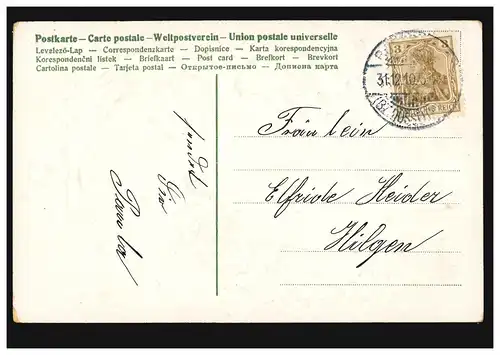 Postkarte – Carte postale – Weltpostverein – Union postale universelle
Levelező-Lap – Correspondenzkarte – Dopisnice – Karta korespondencyjna
Korespondenční listek – Briefkaart – Post card – Brefkort – Brevkort
Cartolina postale – Tarjeta postal – Открытое-письмо – Дописна карта
3 3
REICH
31.12.10.
Fräulein
Elfride Heider
Hilgen